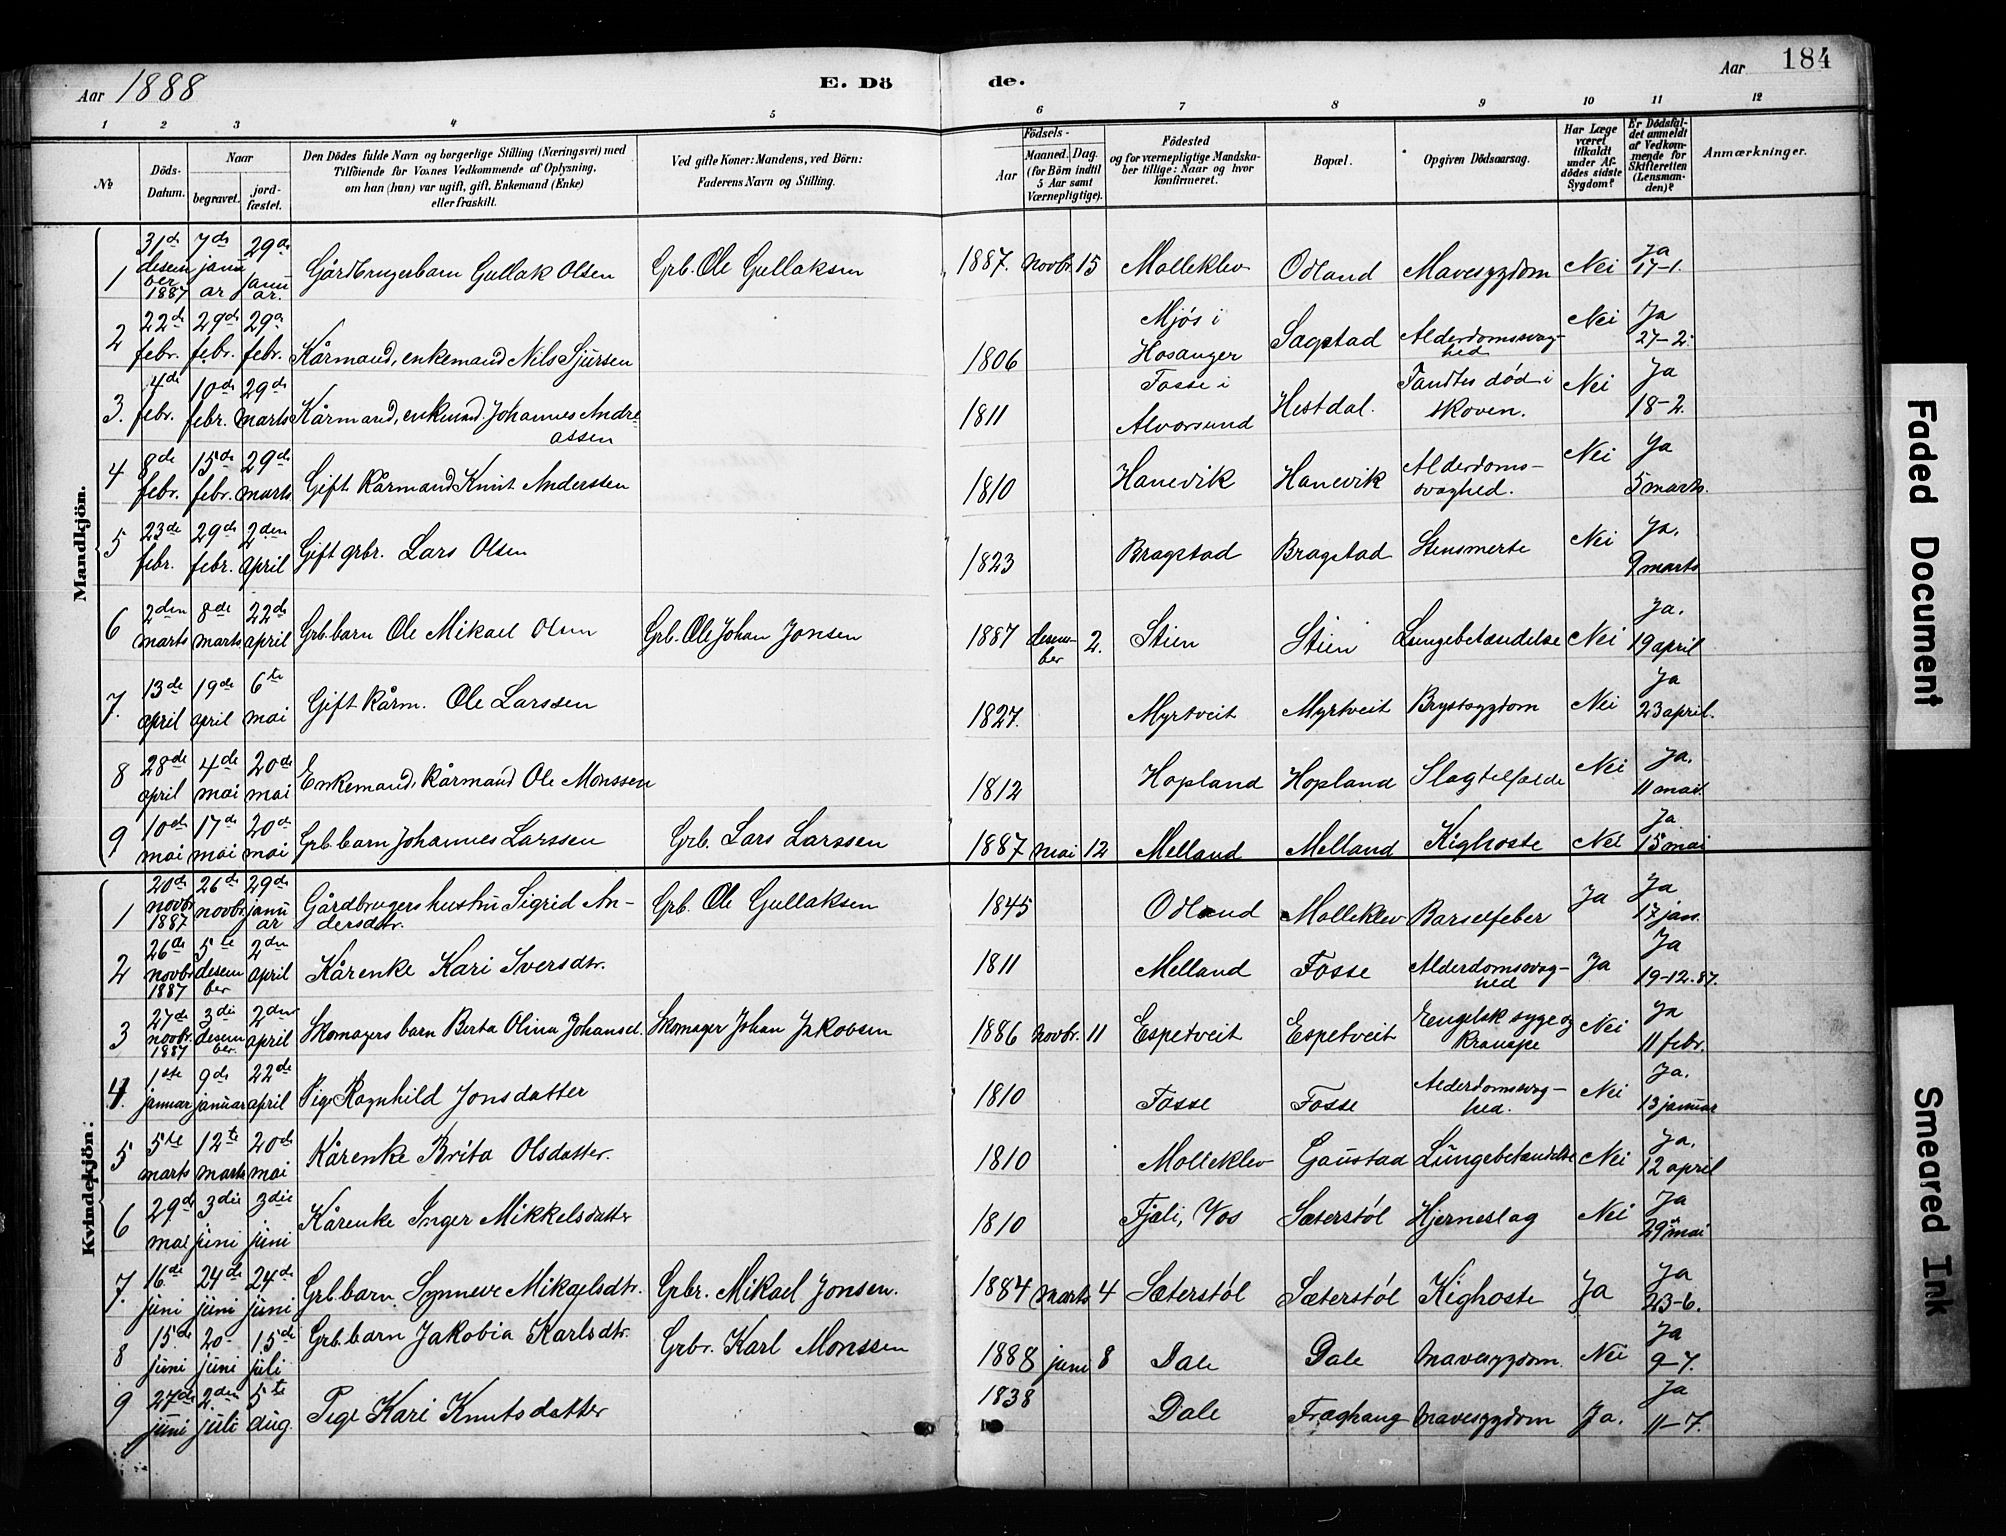 Aar 1888 E. Dö de. Aar 184
1 2 3 4 5 6 7 8 9 10 11 12
№ Döds-Datum. Naar begravet. jordfæstet. Den Dödes fulde Navn og borgerlige Stilling (Næringsvei) med Tilföiende for Voxnes Vedkommende af Oplysning, om han (hun) var ugift, gift, Enkemand (Enke) eller fraskilt. Ved gifte Koner: Mandens, ved Börn: Faderens Navn og Stilling. Födsels- Aar Maaned. Dag. (for Börn indtil 5 Aar samt Værnepligtige). Födested og for værnepligtige Mandskaber tillige: Naar og hvor konfirmeret. Bopæl. Opgiven Dödsaarsag. Har Læge været tilkaldt under Afdödes sidste Sygdom? Er Dödsfaldet anmeldt af Vedkommende for Skifteretten (Lensmanden)? Anmærkninger.
Mandkjön.
1 31de desember 1887 7de januar 29de januar. Gårdbrugerbarn Gullak Olsen Grb. Ole Gullaksen 1887. novbr. 15 Molleklev Odland Mavesygdom Nei Ja 17-1.
2 22de febr. 29de febr. 29de febr. Kårmand, enkemand Nils Sjursen 1806 Mjøs i Hosanger Sagstad Alderdomssvaghed Nei Ja 27-2.
3. 4de febr. 10de febr. 29de marts Kårmand, enkemand. Johannes Andreassen 1811 Fosse i Alversund Hestdal. Fandtes død i skoven. Nei Ja 18-2.
4 8de febr. 15de febr. 29de marts Gift Kårmand Knut Anderssen 1810 Hanevik Hanevik Alderdomssvaghed. Nei Ja 5 marts.
5 23de febr. 29de febr. 2den april Gift grbr. Lars Olsen 1823 Bragstad Bragstad Stensmerte Nei Ja. 9 marts
6 2den marts 8de marts 22de april Grb. barn Ole Mikael Olsen Grb. Ole Johan Jonsen 1887 desember 2. Stien Stien Lungebetændelse Nei Ja. 19 april
7. 13de april 19de april 6te mai Gift Kårm. Ole Larssen 1827. Myrtveit Myrtveit Brystsygdom Nei Ja 23 april.
8 28de april 4de mai 20de mai Enkemand, Kårmand Ole Monssen 1812 Hopland Hopland Slagtilfælde Nei Ja. 11 mai.
9 10de mai 17de mai 20de mai Grb. barn Johannes Larssen Grb. Lars Larssen 1887 mai 12 Melland Melland Kighoste Nei Ja 15 mai
Kvindekjön:
1 20de novbr. 1887 26de novbr. 29de januar Gårdbrugers hustru Sigrid Andersdtr. Grb. Ole Gullaksen 1845 Odland Molleklev Barselfeber Ja Ja 17 jan.
2 26de novbr. 1887 5te desember 2den april Kårenke Kari Iversdtr. 1811 Melland Fosse Alderdomssvaghed Ja Ja 19-12.87.
3 27de novbr. 1887 3die desember. 2den april Skomagers barn Berta Olina Johansd. Skomager Johan Jakobsen 1886 novbr. 11 Espetveit Espetveit Engelsk syge og Krampe Nei Ja 11 febr.
4. 1ste januar 9de januar 22de april Pige Ragnhild Jonsdatter 1810 Fosse Fosse Alderdomssvaghed. Nei Ja. 13 januar
5 5te marts 12te marts 20de mai Kårenke Brita Olsdatter. 1810 Molleklev Gaustad Lungebetændelse Nei Ja. 12 april
6 29de mai 3die juni 3die juni Kårenke Inger Mikkelsdatter 1810 Fjæli, Vos Sæterstøl Hjerneslag Nei Ja 29de mai
7. 16de juni 24de juni 24de juni Grb. barn. Synneve Mikaelsdtr. Grbr. Mikael Jonsen. 1884 marts 4 Sæterstøl Sæterstøl Kighoste Ja Ja 23-6.
8 15de juni 20 juni 15de juli Grb. barn Jakobia Karlsdtr. Grbr. Karl Monssen 1888 juni 8 Dale Dale Mavesygdom. Nei Ja 9-7.
9 27de juni 2den juli 5te aug. Pige Kari Knutsdatter 1838 Dale Fræghaug Mavesygdom Ja. Ja 11-7.
Faded Document
Smeared Ink